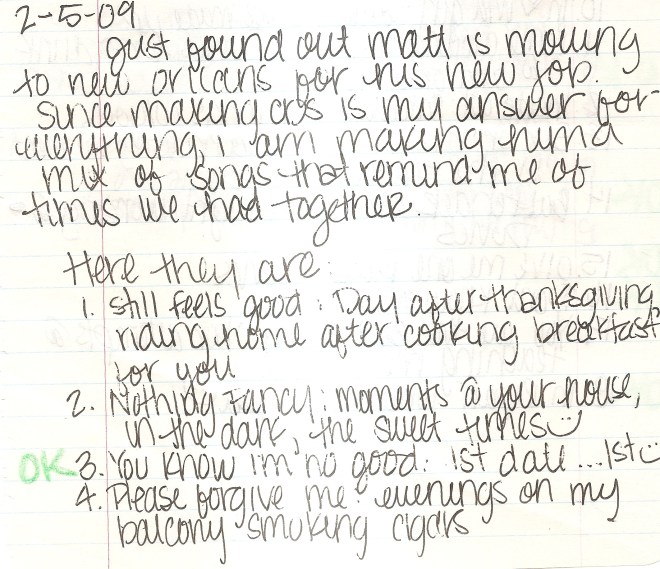 2-5-09
Just found out matt is moving
to new orleans for his new job.
Since making cds is my answer for
everything, i am making him a
mix of songs that remind me of
times we had together.
Here they are:
1. Still feels good: Day after thanksgiving
riding home after cooking breakfast
for you
2. Nothing Fancy: moments @ your house,
in the dark, the sweet times
OK 3. You know i'm no good: 1st date...1st
4. Please forgive me: evenings on my
balcony smoking cigars